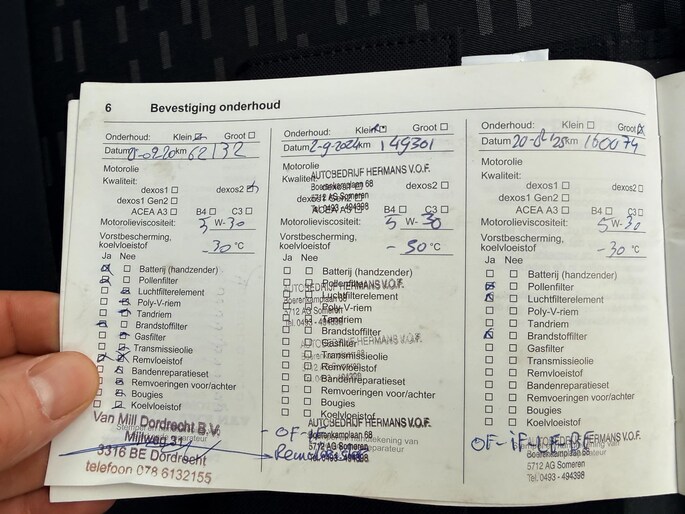 6 Bevestiging onderhoud
Onderhoud: Klein Groot
Datum km 62132
Motorolie
Kwaliteit:
dexos1 dexos2
dexos1 Gen2
ACEA A3 B4 C3
Motorolieviscositeit: 5 W-30
Vorstbescherming,
koelvloeistof -30 °C
Ja Nee
Batterij (handzender)
Pollenfilter
Luchtfilterelement
Poly-V-riem
Tandriem
Brandstoffilter
Gasfilter
Transmissieolie
Remvloeistof
Bandenreparatieset
Remvoeringen voor/achter
Bougies
Koelvloeistof
Van Mill Dordrecht B.V.
Milweg 31
3316 BE Dordrecht
telefoon 078 6132155
Onderhoud: Klein Groot
Datum 2-9-2024 km 149301
Motorolie
AUTOBEDRIJF HERMANS V.O.F.
Kwaliteit:
Boerenkamplaan 68
dexos1 dexos2
5712 AG Someren
dexos1 Gen2
Tel. 0493 - 494398
ACEA A3 B4 C3
Motorolieviscositeit: 5 W-30
Vorstbescherming,
koelvloeistof -30 °C
Ja Nee
Batterij (handzender)
Pollenfilter
AUTOBEDRIJF HERMANS V.O.F.
Luchtfilterelement
Boerenkamplaan 68
Poly-V-riem
Tandriem
Tel. 0493 - 494398
Brandstoffilter
AUTOBEDRIJF HERMANS V.O.F.
Gasfilter
Transmissieolie
Remvloeistof
Bandenreparatieset
Remvoeringen voor/achter
Bougies
Koelvloeistof
AUTOBEDRIJF HERMANS V.O.F.
Boerenkamplaan 68
5712 AG Someren
Tel. 0493 - 494398
Onderhoud: Klein Groot
Datum km 160074
Motorolie
Kwaliteit:
dexos1 dexos2
dexos1 Gen2
ACEA A3 B4 C3
Motorolieviscositeit: 5 W-30
Vorstbescherming,
koelvloeistof -30 °C
Ja Nee
Batterij (handzender)
Pollenfilter
Luchtfilterelement
Poly-V-riem
Tandriem
Brandstoffilter
Gasfilter
Transmissieolie
Remvloeistof
Bandenreparatieset
Remvoeringen voor/achter
Bougies
Koelvloeistof
AUTOBEDRIJF HERMANS V.O.F.
Boerenkamplaan 68
5712 AG Someren
Tel. 0493 - 494398